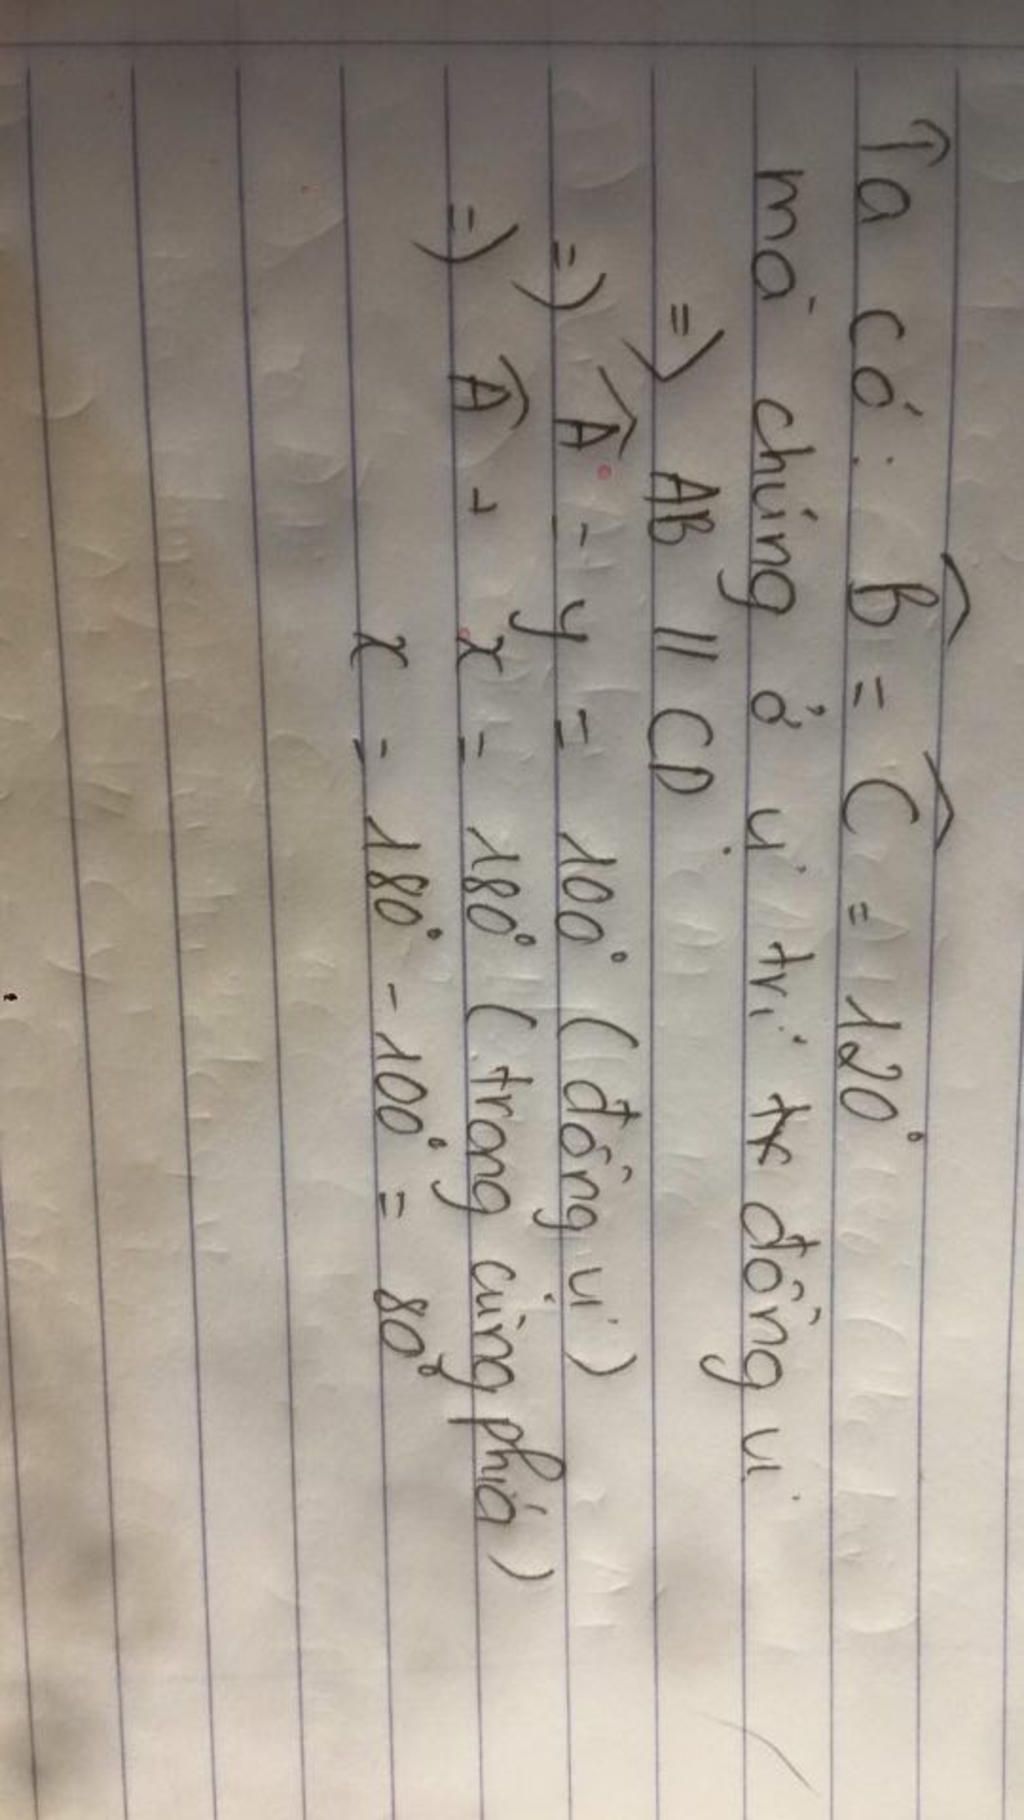 Ta có: B̂ = Ĉ = 120°
mà chúng ở vị trí đồng vị
=) AB // CD
=) Â = y = 100° (đồng vị)
=) Â + x = 180° (trong cùng phía)
x = 180° - 100° = 80°